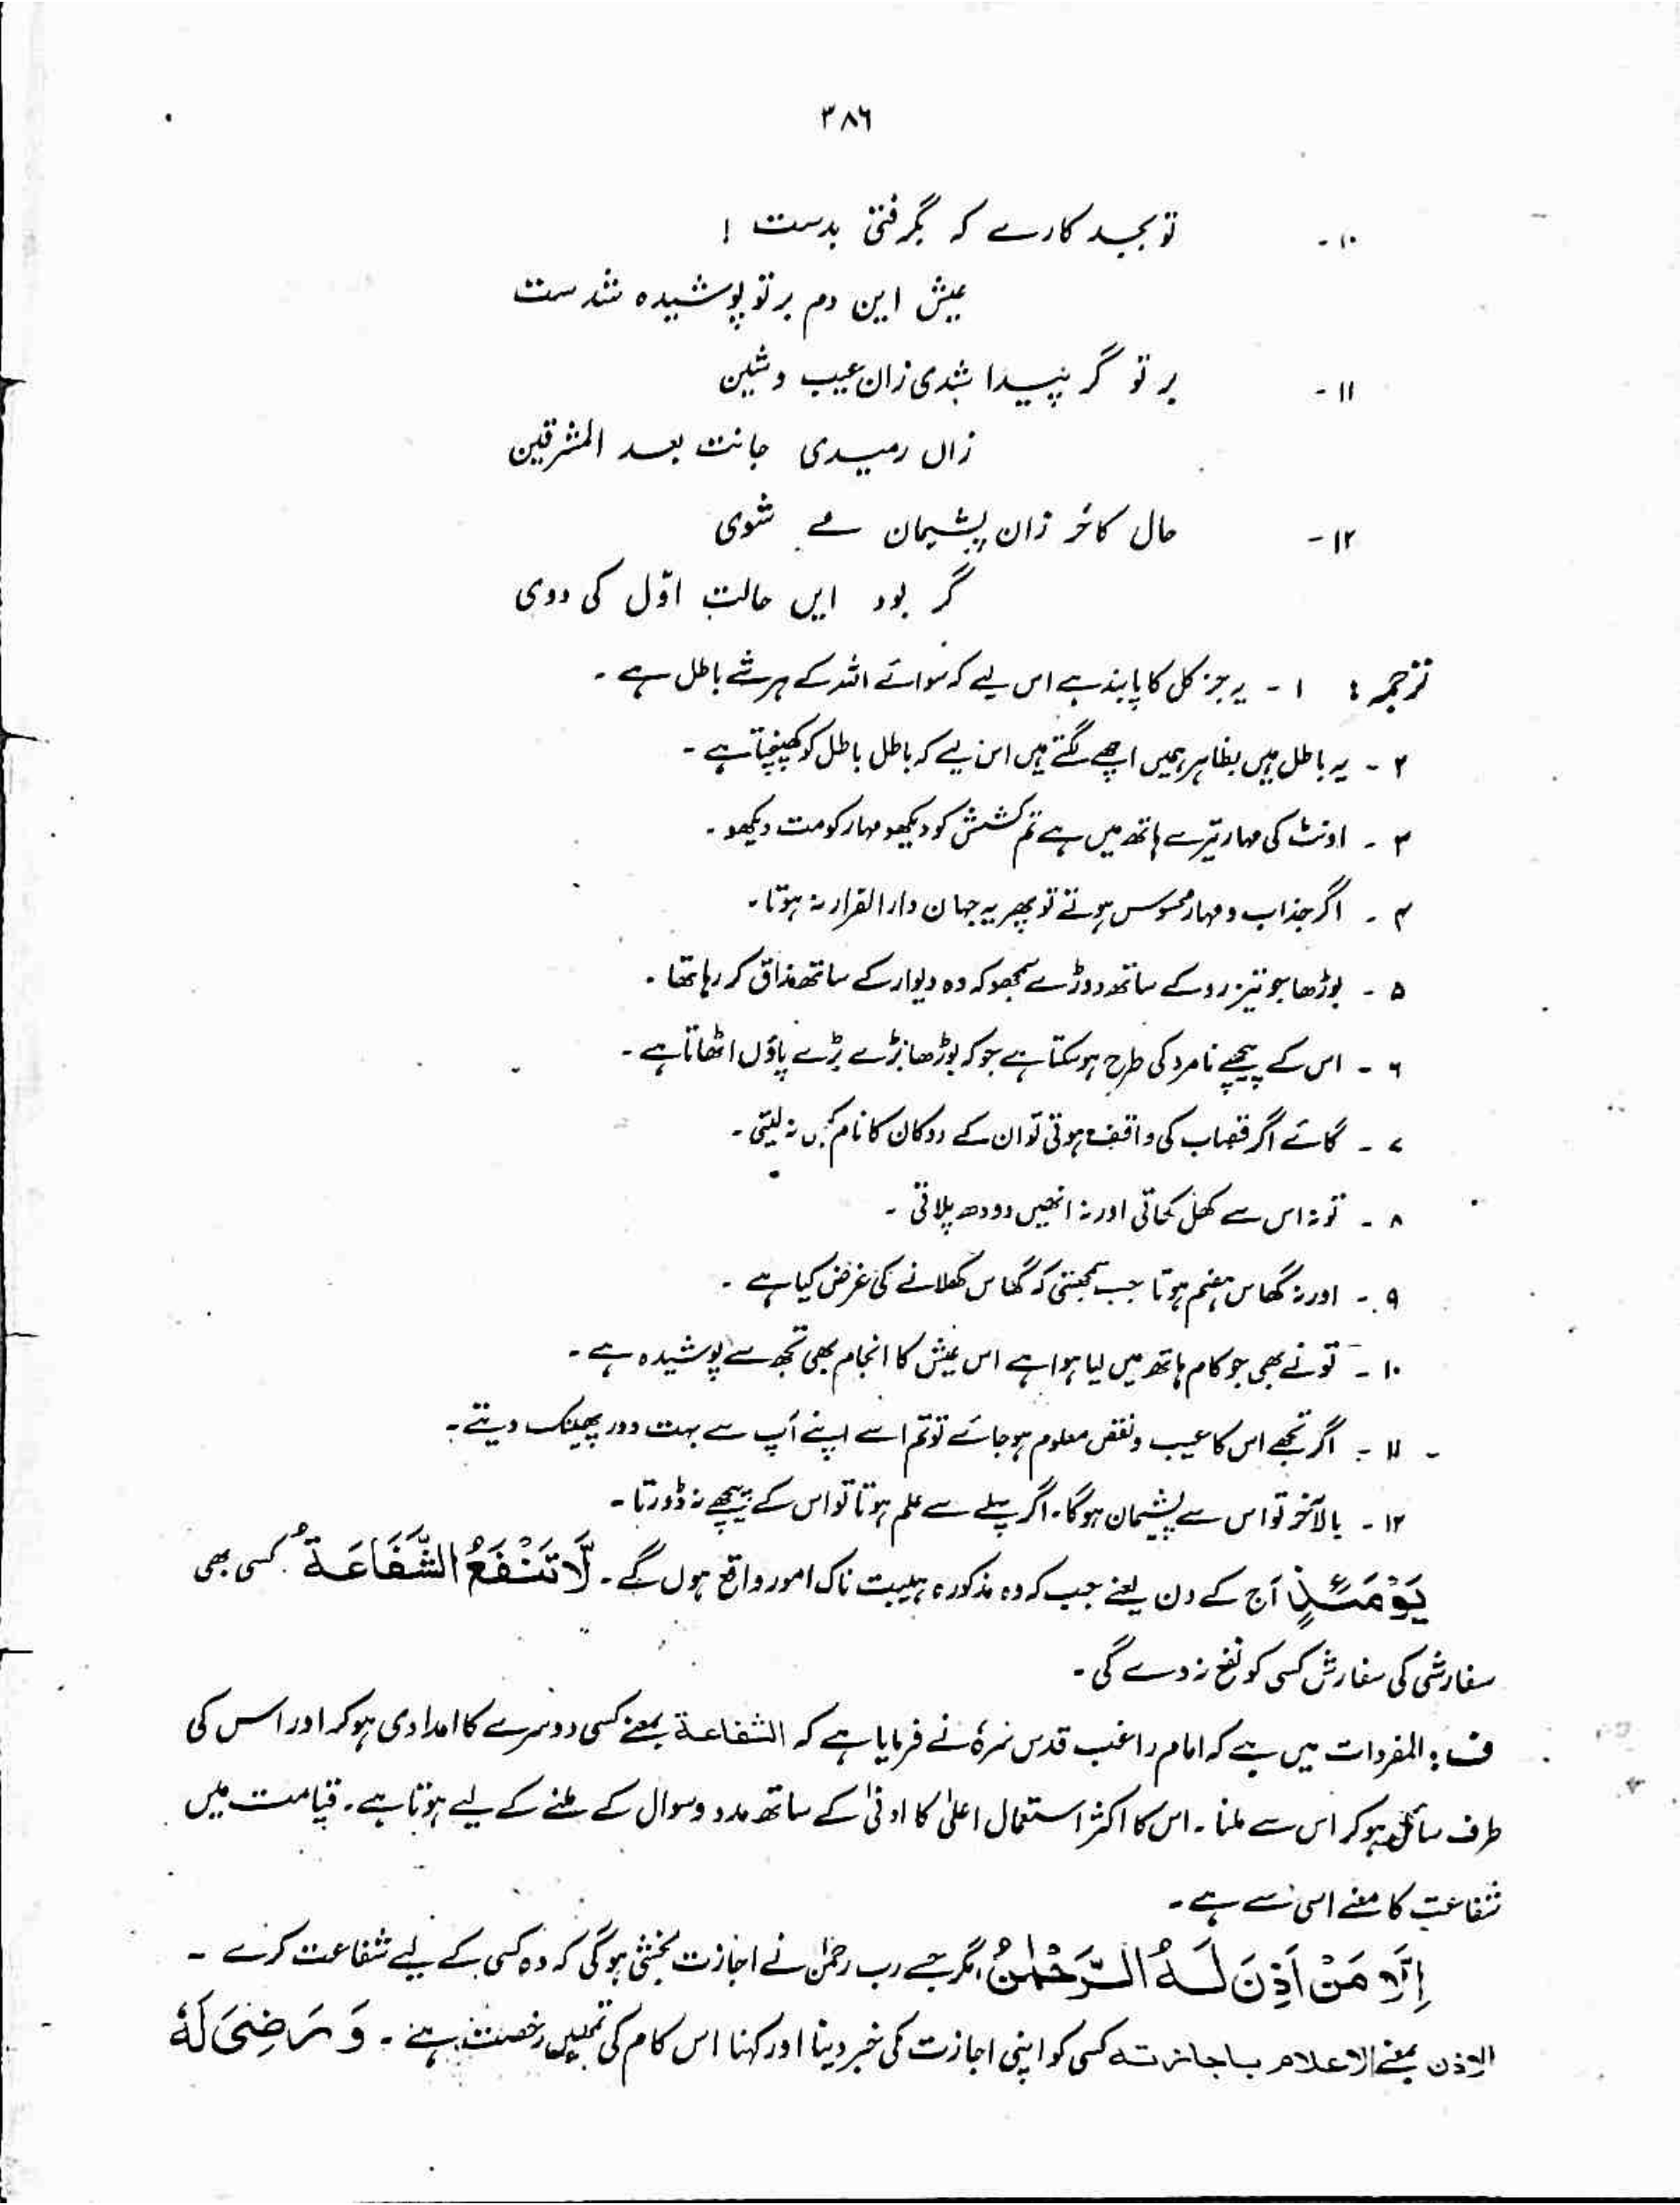 ۳۸۶
۱۰- تو بجد کارے کہ بگرفتی بدست !
عیش این دم بر تو پوشیدہ شدست
۱۱- بر تو گر پیدا شدی زان عیب و شین
زاں رمیدی جانت بعد المشرقین
۱۲- حال کاخر زان پشیمان مے شوی
گر بود ایں حالت اوّل کی دوی
ترجمہ : ۱ - یہ جز کل کا پابند ہے اس لیے کہ سوائے اللہ کے ہر شے باطل ہے ۔
۲ - یہ باطل ہیں بظاہر ہمیں اچھے لگتے ہیں اس لیے کہ باطل باطل کو کھینچتا ہے ۔
۳ - اونٹ کی مہار تیرے ہاتھ میں ہے تم کشش کو دیکھو مہار کو مت دیکھو ۔
۴ - اگر جذاب و مہار محسوس ہوتے تو پھر یہ جہان دار القرار نہ ہوتا ۔
۵ - بوڑھا جو تیز رو کے ساتھ دوڑے سمجھو کہ وہ دیوار کے ساتھ مذاق کر رہا تھا ۔
۶ - اس کے پیچھے نامرد کی طرح ہو سکتا ہے جو کہ بوڑھا بڑے بڑے پاؤں اٹھاتا ہے ۔
۷ - گائے اگر قصاب کی واقف ہوتی تو ان کے دوکان کا نام نہ لیتی ۔
۸ - تو نہ اس سے کھل کھاتی اور نہ انھیں دودھ پلاتی ۔
۹ - اور نہ گھاس ہضم ہوتا جب سمجھتی کہ گھاس کھلانے کی غرض کیا ہے ۔
۱۰ - تو نے بھی جو کام ہاتھ میں لیا ہوا ہے اس عیش کا انجام بھی تجھ سے پوشیدہ ہے ۔
۱۱ - اگر تجھے اس کا عیب و نقص معلوم ہو جائے تو تم اسے اپنے آپ سے بہت دور پھینک دیتے ۔
۱۲ - بالآخر تو اس سے پشیمان ہوگا ۔ اگر پہلے سے علم ہوتا تو اس کے پیچھے نہ ڈورتا ۔
يَوْمَئِذٍ آج کے دن یعنے جب کہ وہ مذکورہ ہیبت ناک امور واقع ہوں گے ۔ لَّا تَنْفَعُ الشَّفَاعَةُ کسی بھی
سفارشی کی سفارش کسی کو نفع نہ دے گی ۔
ف : المفردات میں ہے کہ امام راغب قدس سرہٗ نے فرمایا ہے کہ الشفاعۃ بمعنے کسی دوسرے کا امدادی ہو کر اور اس کی
طرف سائل ہو کر اس سے ملنا ۔ اس کا اکثر استعمال اعلیٰ کا ادنیٰ کے ساتھ مدد و سوال کے ملنے کے لیے ہوتا ہے ۔ قیامت میں
شفاعت کا معنے اسی سے ہے ۔
اِلَّا مَنْ اَذِنَ لَهُ الرَّحْمٰنُ مگر جسے رب رحمٰن نے اجازت بخشی ہوگی کہ وہ کسی کے لیے شفاعت کرے ۔
الاذن بمعنے الاعلام باجازتہ کسی کو اپنی اجازت کی خبر دینا اور کہنا اس کام کی تمہیں رخصت ہے ۔ وَرَضِيَ لَهٗ